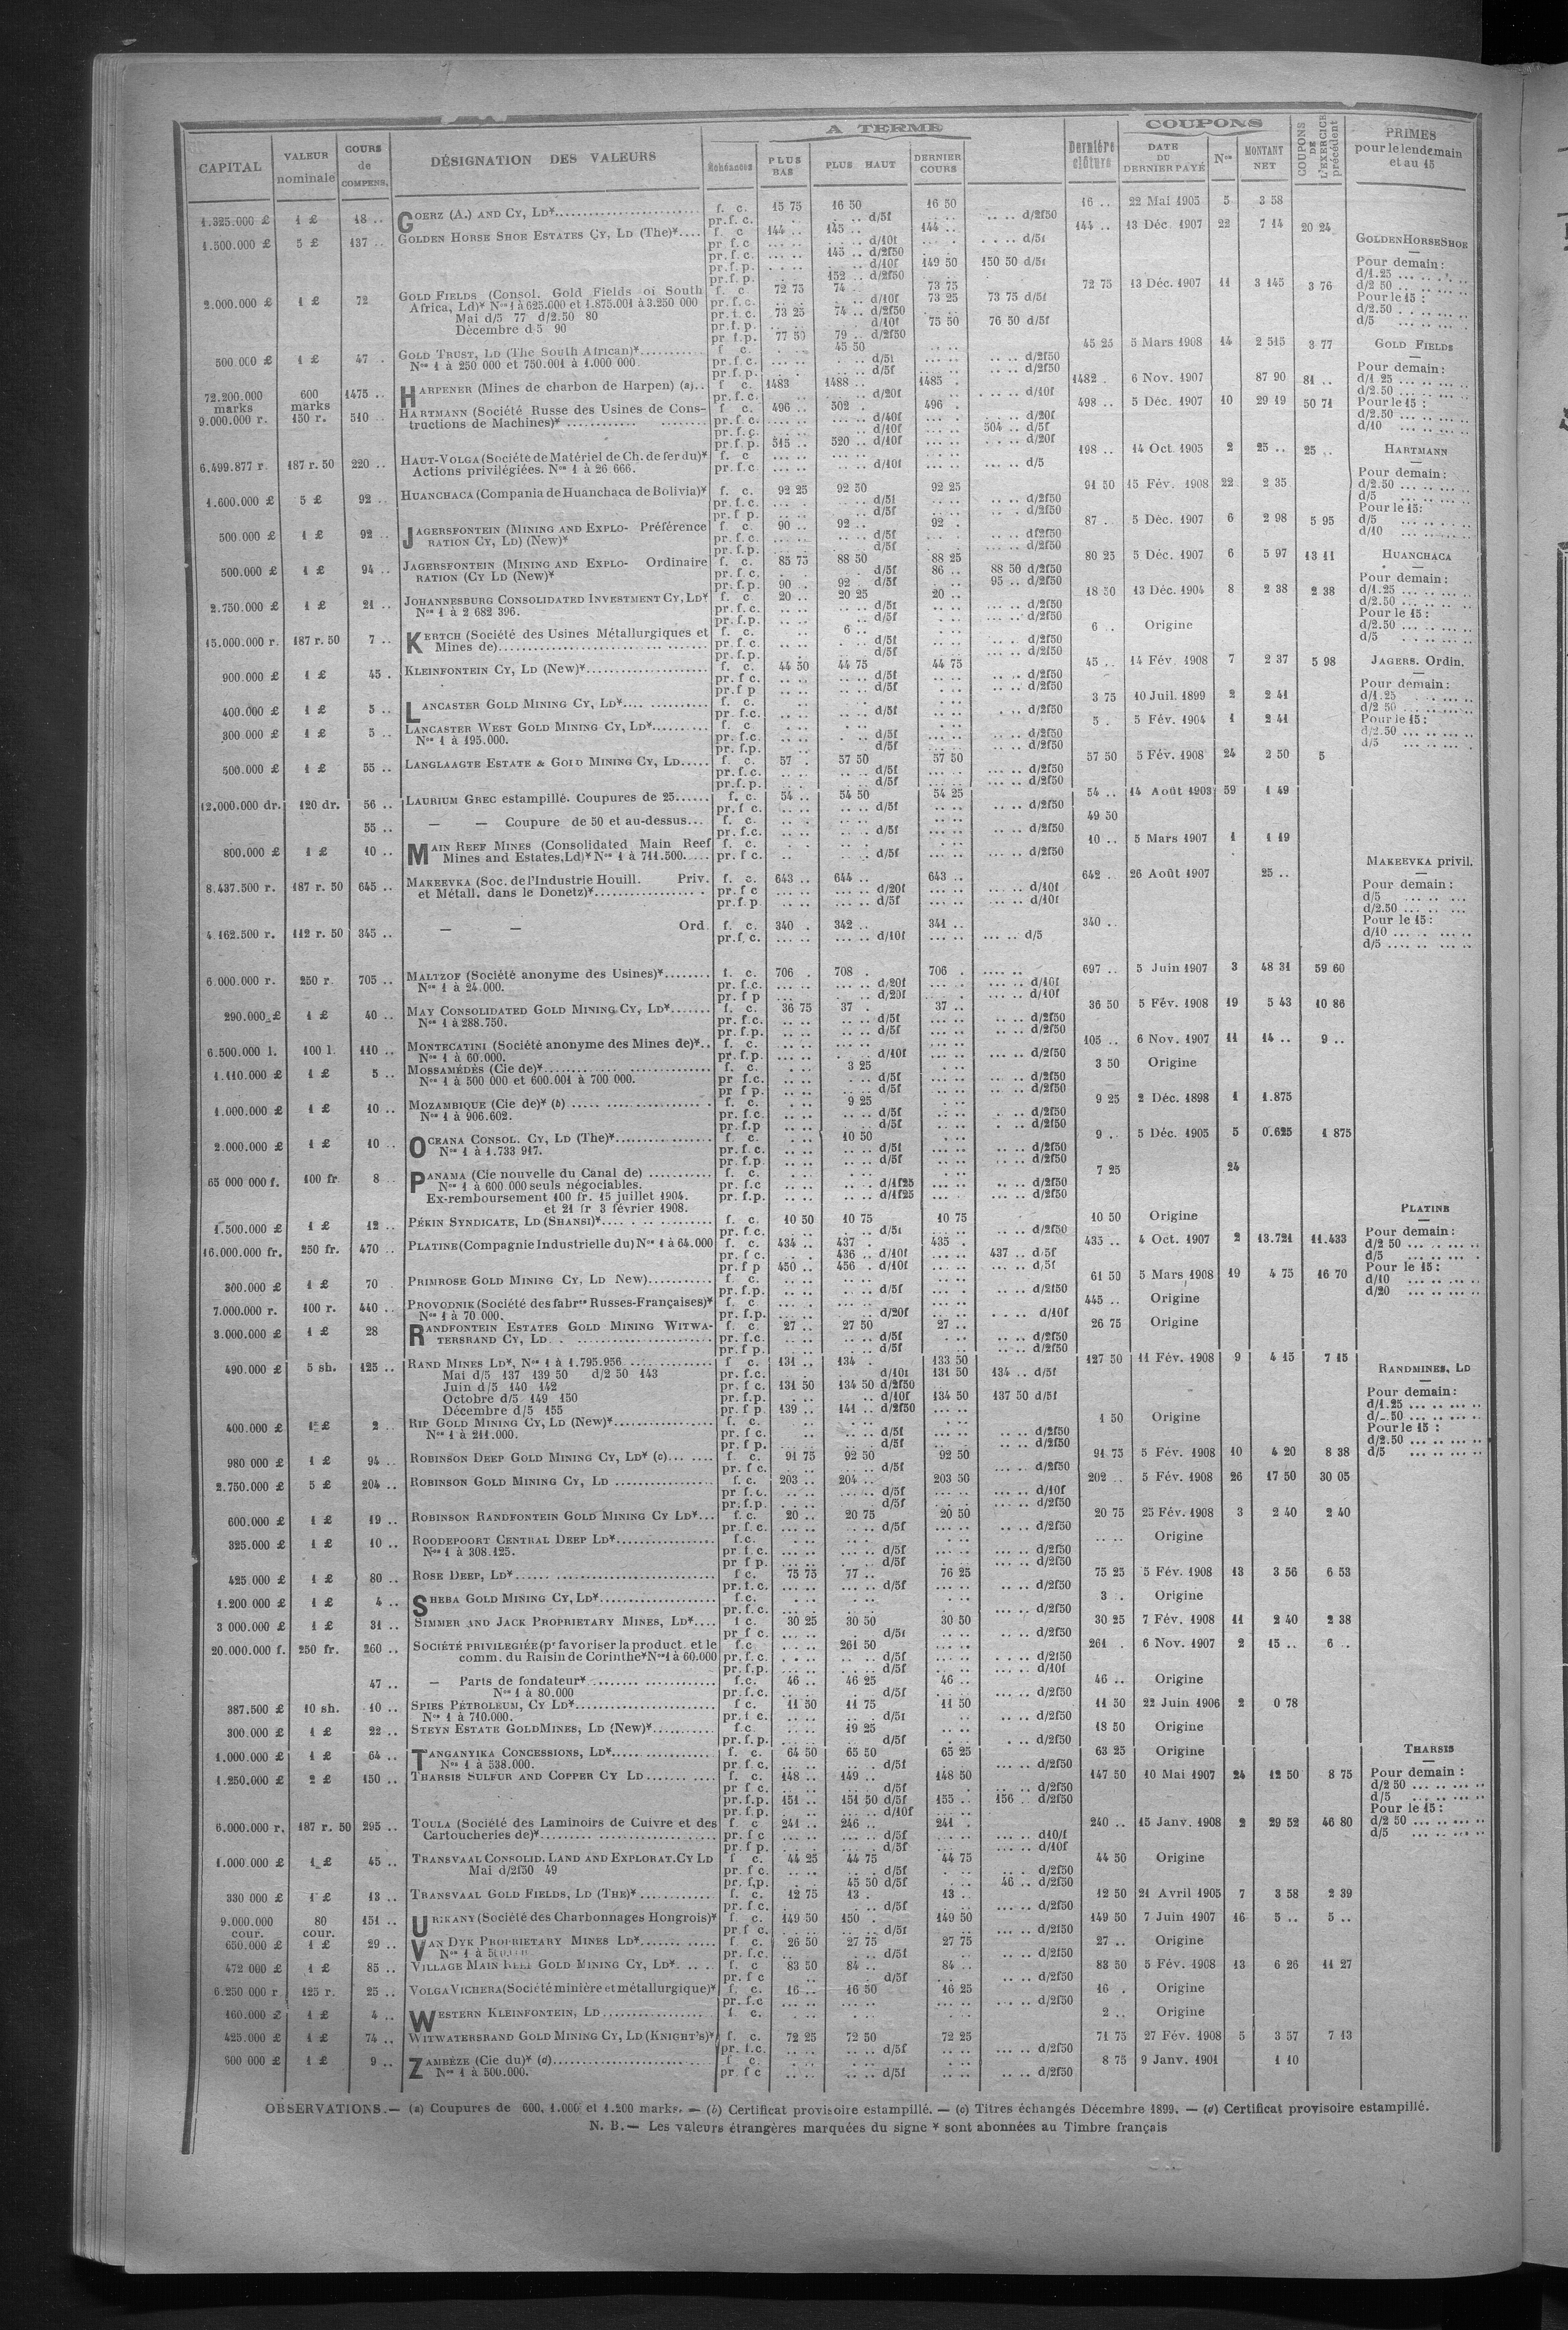 CAPITAL | VALEUR nominale | COURS de COMPENS. | DÉSIGNATION DES VALEURS | Échéances | A TERME: PLUS BAS | PLUS HAUT | DERNIER COURS | | Dernière clôture | COUPONS: DATE DU DERNIER PAYÉ | Nos | MONTANT NET | COUPONS DE L'EXERCICE précédent | PRIMES pour le lendemain et au 15
1.325.000 £ 1 £ 18 .. GOERZ (A.) AND CY, LD¥ f. c. 15 75 16 50 16 50 16 .. 22 Mai 1905 5 3 58
pr. f. c. d/5f d/2f50
1.500.000 £ 5 £ 137 .. GOLDEN HORSE SHOE ESTATES CY, LD (The)¥ f. c 144 .. 145 .. 144 .. 144 .. 13 Déc. 1907 22 7 14 20 24
pr. f. c. d/10f d/5f
pr. f. c. 145 .. d/2f50
pr. f. p. d/10f 149 50 150 50 d/5f
pr. f. p. 152 .. d/2f50
2.000.000 £ 1 £ 72 GOLD FIELDS (Consol. Gold Fields of South f. c 72 75 74 .. 73 75 72 75 13 Déc. 1907 11 3 145 3 76
Africa, Ld)¥ Nos 1 à 625.000 et 1.875.001 à 3.250 000 pr. f. c. d/10f 73 25 73 75 d/5f
Mai d/5 77 d/2.50 80 pr. f. c. 73 25 74 .. d/2f50
Décembre d 5 90 pr. f. p. d/10f 75 50 76 50 d/5f
pr. f. p. 77 50 79 .. d/2f50
500.000 £ 1 £ 47 . GOLD TRUST, LD (The South African)¥ f c. 45 50 45 25 5 Mars 1908 14 2 515 3 77
Nos 1 à 250 000 et 750.001 à 1.000 000. pr. f. c. d/5f d/2f50
pr. f. p. d/5f d/2f50
72.200.000 marks 600 marks 1475 .. HARPENER (Mines de charbon de Harpen) (a) f c. 1483 1488 .. 1485 . 1482 . 6 Nov. 1907 87 90 81 ..
pr. f. c. d/20f d/10f
9.000.000 r. 150 r. 510 .. HARTMANN (Société Russe des Usines de Cons- f. c. 496 .. 502 . 496 . 498 .. 5 Déc. 1907 10 29 19 50 71
tructions de Machines)¥ pr. f. c. d/40f d/20f
pr. f. c. d/10f 504 .. d/5f
pr. f. p. 515 .. 520 .. d/10f d/20f
6.499.877 r. 187 r. 50 220 .. HAUT-VOLGA (Société de Matériel de Ch. de fer du)¥ f. c 198 .. 14 Oct. 1905 2 25 .. 25 ..
Actions privilégiées. Nos 1 à 26 666. pr. f. c d/10f d/5
1.600.000 £ 5 £ 92 .. HUANCHACA (Compania de Huanchaca de Bolivia)¥ f. c. 92 25 92 50 92 25 91 50 15 Fév. 1908 22 2 35
pr. f. c. d/5f d/2f50
pr. f p. d/5f d/2f50
500.000 £ 1 £ 92 .. JAGERSFONTEIN (MINING AND EXPLO- Préférence f. c. 90 .. 92 .. 92 . 87 . 5 Déc. 1907 6 2 98 5 95
RATION CY, LD) (New)¥ pr. f. c. d/5f d/2f50
pr. f. p. d/5f d/2f50
500.000 £ 1 £ 94 .. JAGERSFONTEIN (MINING AND EXPLO- Ordinaire f. c. 85 75 88 50 88 25 80 25 5 Déc. 1907 6 5 97 13 11
RATION (CY LD (New)¥ pr. f. c. d/5f 86 .. 88 50 d/2f50
pr. f. p. 90 .. 92 . d/5f 95 .. d/2f50
2.750.000 £ 1 £ 21 .. JOHANNESBURG CONSOLIDATED INVESTMENT CY, LD¥ f. c. 20 .. 20 25 20 .. 18 50 13 Déc. 1904 8 2 38 2 38
Nos 1 à 2 682 396. pr. f. c. d/5f d/2f50
pr. f. p. d/5f d/2f50
15.000.000 r. 187 r. 50 7 .. KERTCH (Société des Usines Métallurgiques et f. c. 6 .. 6 .. Origine
Mines de) pr. f. c. d/5f d/2f50
pr. f. p. d/5f d/2f50
900.000 £ 1 £ 45 . KLEINFONTEIN CY, LD (New)¥ f. c. 44 50 44 75 44 75 45 .. 14 Fév. 1908 7 2 37 5 98
pr. f c. d/5f d/2f50
pr. f p d/5f d/2f50
400.000 £ 1 £ 5 .. LANCASTER GOLD MINING CY, LD¥ f. c. 3 75 10 Juil. 1899 2 2 41
pr. f. c. d/5f d/2f50
300.000 £ 1 £ 5 .. LANCASTER WEST GOLD MINING CY, LD¥ f. c 5 . 5 Fév. 1904 1 2 41
Nos 1 à 195.000. pr. f. c. d/5f d/2f50
pr. f.p. d/5f d/2f50
500.000 £ 1 £ 55 .. LANGLAAGTE ESTATE & GOLD MINING CY, LD f. c. 57 . 57 50 57 50 57 50 5 Fév. 1908 24 2 50 5
pr. f. c. d/5f d/2f50
pr. f. p. d/5f d/2f50
12.000.000 dr. 120 dr. 56 .. LAURIUM GREC estampillé. Coupures de 25 f. c. 54 .. 54 50 54 25 54 .. 14 Août 1903 59 1 49
pr. f c. d/5f d/2f50
55 .. — — Coupure de 50 et au-dessus f. c. 49 50
pr. f. c. d/5f d/2f50
800.000 £ 1 £ 10 .. MAIN REEF MINES (Consolidated Main Reef f. c. 10 .. 5 Mars 1907 1 1 19
Mines and Estates, Ld)¥ Nos 1 à 711.500. pr. f c. d/5f d/2f50
8.437.500 r. 187 r. 50 645 .. MAKEEVKA (Soc. de l'Industrie Houill. Priv. f. c. 643 .. 644 .. 643 .. 642 .. 26 Août 1907 25 ..
et Métall. dans le Donetz)¥ pr. f c d/20f d/10f
pr. f. p d/5f d/10f
4.162.500 r. 112 r. 50 345 .. — — Ord. f. c. 340 . 342 .. 341 .. 340 ..
pr. f. c. d/10f d/5
6.000.000 r. 250 r. 705 .. MALTZOF (Société anonyme des Usines)¥ f. c. 706 . 708 . 706 . 697 .. 5 Juin 1907 3 48 31 59 60
Nos 1 à 24.000. pr. f. c. d/20f d/10f
pr. f p d/20f d/10f
290.000 £ 1 £ 40 .. MAY CONSOLIDATED GOLD MINING CY, LD¥ f. c. 36 75 37 . 37 .. 36 50 5 Fév. 1908 19 5 43 10 86
Nos 1 à 288.750. pr. f. c. d/5f d/2f50
pr. f. p. d/5f d/2f50
6.500.000 l. 100 l. 110 .. MONTECATINI (Société anonyme des Mines de)¥ f. c. 105 .. 6 Nov. 1907 11 14 .. 9 ..
Nos 1 à 60.000. pr. f. p. d/10f d/2f50
1.110.000 £ 1 £ 5 .. MOSSAMÉDÈS (Cie de)¥ f. c. 3 25 3 50 Origine
Nos 1 à 500 000 et 600.001 à 700 000. pr f.c. d/5f d/2f50
pr f p. d/5f d/2f50
1.000.000 £ 1 £ 10 .. MOZAMBIQUE (Cie de)¥ (b) f. c. 9 25 9 25 2 Déc. 1898 1 1.875
Nos 1 à 906.602. pr. f.c. d/5f d/2f50
pr. f.p d/5f d/2f50
2.000.000 £ 1 £ 10 .. OCEANA CONSOL. CY, LD (The)¥ f c. 10 50 9 . 5 Déc. 1905 5 0.625 1 875
Nos 1 à 1.733 917. pr. f. c. d/5f d/2f50
pr. f. p. d/5f d/2f50
65 000 000 f. 100 fr. 8 PANAMA (Cie nouvelle du Canal de) f. c. 7 25 24
Nos 1 à 600.000 seuls négociables. pr. f.c d/1f25 d/2f50
Ex-remboursement 100 fr. 15 juillet 1904. pr. f.p. d/1f25 d/2f50
et 21 fr 3 février 1908.
1.500.000 £ 1 £ 12 .. PÉKIN SYNDICATE, LD (SHANSI)¥ f. c. 10 50 10 75 10 75 10 50 Origine
pr. f. c. d/5f d/2f50
16.000.000 fr. 250 fr. 470 .. PLATINE (Compagnie Industrielle du) Nos 1 à 64.000 f. c. 434 .. 437 . 435 . 435 .. 4 Oct. 1907 2 13.721 11.433
pr. f c. 436 .. d/10f 437 .. d/5f
pr. f p 450 .. 456 . d/10f d/5f
300.000 £ 1 £ 70 PRIMROSE GOLD MINING CY, LD New) f c. 61 50 5 Mars 1908 19 4 75 16 70
pr. f. p. d/5f d/2f50
7.000.000 r. 100 r. 440 .. PROVODNIK (Société des fabres Russes-Françaises)¥ f. c. 445 .. Origine
Nos 1 à 70 000. pr. f.p. d/20f d/10f
3.000.000 £ 1 £ 28 RANDFONTEIN ESTATES GOLD MINING WITWA- f. c. 27 .. 27 50 27 .. 26 75 Origine
TERSRAND CY, LD pr. f.c. d/5f d/2f50
pr. f p. d/5f d/2f50
490.000 £ 5 sh. 125 .. RAND MINES LD¥, Nos 1 à 1.795.956 f c. 131 .. 134 . 133 50 127 50 11 Fév. 1908 9 4 15 7 15
Mai d/5 137 139 50 d/2 50 143 pr. f.c. d/10f 131 50 134 .. d/5f
Juin d/5 140 142 pr. f c. 131 50 134 50 d/2f50
Octobre d/5 149 150 pr. f.p. d/10f 134 50 137 50 d/5f
Décembre d/5 155 pr. f p. 139 .. 141 .. d/2f50
400.000 £ 1 £ 2 .. RIP GOLD MINING CY, LD (New)¥ f. c. 1 50 Origine
Nos 1 à 211.000. pr. f c. d/5f d/2f50
pr. f p. d/5f d/2f50
980 000 £ 1 £ 94 .. ROBINSON DEEP GOLD MINING CY, LD¥ (c) f. c. 91 75 92 50 92 50 91 75 5 Fév. 1908 10 4 20 8 38
pr. f c. d/5f d/2f50
2.750.000 £ 5 £ 204 .. ROBINSON GOLD MINING CY, LD f. c. 203 .. 204 .. 203 50 202 .. 5 Fév. 1908 26 17 50 30 05
pr. f. c. d/5f d/10f
pr. f.p. d/5f d/2f50
600.000 £ 1 £ 19 .. ROBINSON RANDFONTEIN GOLD MINING CY LD¥ f. c. 20 .. 20 75 20 50 20 75 25 Fév. 1908 3 2 40 2 40
pr. f. c. d/5f d/2f50
325.000 £ 1 £ 10 .. ROODEPOORT CENTRAL DEEP LD¥ f.c. Origine
Nos 1 à 308.125. pr. f. c. d/5f d/2f50
pr f p. d/5f d/2f50
425 000 £ 1 £ 80 .. ROSE DEEP, LD¥ f c. 75 75 77 .. 76 25 75 25 5 Fév. 1908 13 3 56 6 53
pr. f. c. d/5f d/2f50
1.200.000 £ 1 £ 4 .. SHEBA GOLD MINING CY, LD¥ f.c. 3 . Origine
pr. f. c. d/2f50
3 000.000 £ 1 £ 31 .. SIMMER AND JACK PROPRIETARY MINES, LD¥ f c. 30 25 30 50 30 50 30 25 7 Fév. 1908 11 2 40 2 38
pr f c. d/5f d/2f50
20.000.000 f. 250 fr. 260 .. SOCIÉTÉ PRIVILEGIÉE (pr favoriser la product. et le f.c 261 50 261 . 6 Nov. 1907 2 15 .. 6 ..
comm. du Raisin de Corinthe¥ Nos 1 à 60.000 pr. f. c. d/5f d/2f50
pr. f.p. d/5f d/10f
47 .. — Parts de fondateur¥ f.c. 46 .. 46 25 46 .. 46 .. Origine
Nos 1 à 80.000 pr. f. c. d/5f d/2f50
387.500 £ 10 sh. 10 .. SPIES PÉTROLEUM, CY LD¥ f c. 11 50 11 75 11 50 11 50 22 Juin 1906 2 0 78
Nos 1 à 710.000. pr. f c. d/5f d/2f50
300.000 £ 1 £ 22 .. STEYN ESTATE GOLD MINES, LD (New)¥ f.c 19 25 18 50 Origine
pr. f. p. d/5f d/2f50
1.000.000 £ 1 £ 64 .. TANGANYIKA CONCESSIONS, LD¥ f. c. 64 50 65 50 65 25 63 25 Origine
Nos 1 à 538.000. pr f. c. d/5f d/2f50
1.250.000 £ 2 £ 150 .. THARSIS SULFUR AND COPPER CY LD f. c. 148 .. 149 .. 148 50 147 50 10 Mai 1907 24 12 50 8 75
pr f c. d/5f d/2f50
pr. f.p. 151 .. 151 50 d/5f 155 .. 156 . d/2f50
pr. f.p. d/10f
6.000.000 r. 187 r. 50 295 .. TOULA (Société des Laminoirs de Cuivre et des f. c 241 .. 246 .. 241 . 240 .. 15 Janv. 1908 2 29 52 46 80
Cartoucheries de)¥ pr. f c d/5f d10/f
pr. f p. d/5f d/10f
1.000.000 £ 1 £ 45 .. TRANSVAAL CONSOLID. LAND AND EXPLORAT. CY LD f c. 44 25 44 75 44 75 44 50 Origine
Mai d/2f50 49 pr. f c. d/5f d/2f50
pr. f.p. 45 50 d/5f 46 .. d/2f50
330 000 £ 1 £ 13 .. TRANSVAAL GOLD FIELDS, LD (THE)¥ f. c. 12 75 13 . 13 .. 12 50 21 Avril 1905 7 3 58 2 39
pr. f c. d/5f d/2f50
9.000.000 cour. 80 cour. 151 .. URIKANY (Société des Charbonnages Hongrois)¥ f. c. 149 50 150 . 149 50 149 50 7 Juin 1907 16 5 .. 5 ..
pr f c. d/5f d/2f50
650.000 £ 1 £ 29 .. VAN DYK PROPRIETARY MINES LD¥ f. c. 26 50 27 75 27 75 27 .. Origine
Nos 1 à pr. f.c. d/5f d/2f50
472 000 £ 1 £ 85 .. VILLAGE MAIN REEF GOLD MINING CY, LD¥ f. c 83 50 84 .. 84 .. 83 50 5 Fév. 1908 13 6 26 11 27
pr f c d/5f d/2f50
6.250 000 r 125 r. 25 .. VOLGA VICHERA (Société minière et métallurgique)¥ f. c. 16 .. 16 50 16 25 16 . Origine
pr. f.c d/2f50
160.000 £ 1 £ 4 .. WESTERN KLEINFONTEIN, LD f. c. 2 .. Origine
425.000 £ 1 £ 74 .. WITWATERSRAND GOLD MINING CY, LD (KNIGHT'S)¥ f. c. 72 25 72 50 72 25 71 75 27 Fév. 1908 5 3 57 7 13
pr. f.c. d/5f d/2f50
600 000 £ 1 £ 9 .. ZAMBÈZE (Cie du)¥ (d) f c. 8 75 9 Janv. 1901 1 10
Nos 1 à 500.000. pr f c d/5f d/2f50
GOLDEN HORSE SHOE
Pour demain :
d/1.25
d/2 50
Pour le 15 :
d/2.50
d/5
GOLD FIELDS
Pour demain :
d/1 25
d/2.50
Pour le 15 :
d/2.50
d/10
HARTMANN
Pour demain :
d/2.50
d/5
Pour le 15:
d/5
d/10
HUANCHACA
Pour demain :
d/1.25
d/2.50
Pour le 15 :
d/2.50
d/5
JAGERS. Ordin.
Pour demain :
d/1.25
d/2 50
Pour le 15 :
d/2.50
d/5
MAKEEVKA privil.
Pour demain :
d/5
d/2.50
Pour le 15 :
d/10
d/5
PLATINE
Pour demain :
d/2 50
d/5
Pour le 15 :
d/10
d/20
RANDMINES, LD
Pour demain :
d/1.25
d/_.50
Pour le 15 :
d/2.50
d/5
THARSIS
Pour demain :
d/2 50
d/5
Pour le 15 :
d/2 50
d/5
OBSERVATIONS.— (a) Coupures de 600, 1.000 et 1.200 marks. — (b) Certificat provisoire estampillé. — (c) Titres échangés Décembre 1899. — (d) Certificat provisoire estampillé.
N. B.— Les valeurs étrangères marquées du signe ¥ sont abonnées au Timbre français